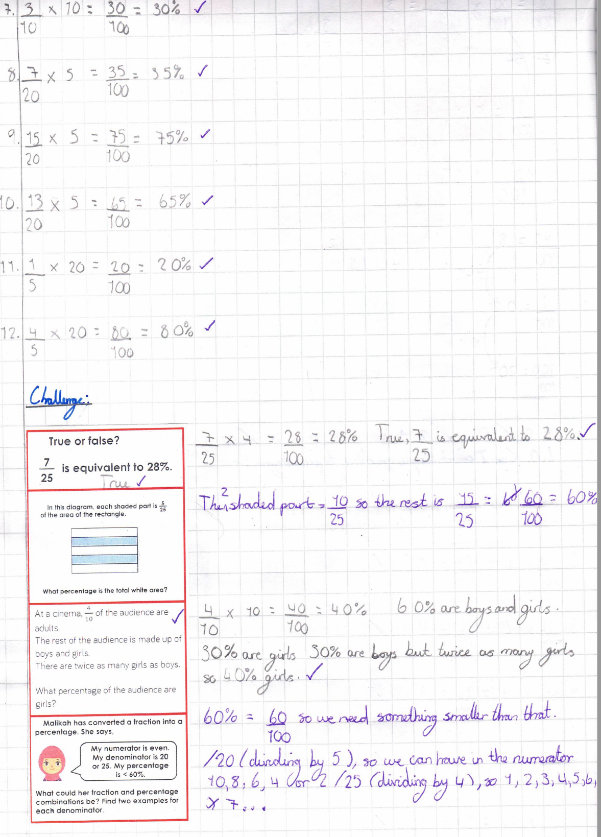 7. 3/10 × 10 = 30/100 = 30% ✓
8. 7/20 × 5 = 35/100 = 35% ✓
9. 15/20 × 5 = 75/100 = 75% ✓
10. 13/20 × 5 = 65/100 = 65% ✓
11. 1/5 × 20 = 20/100 = 20% ✓
12. 4/5 × 20 = 80/100 = 80% ✓
Challenge:
True or false?
7/25 is equivalent to 28%.
True ✓
7/25 × 4 = 28/100 = 28% True, 7/25 is equivalent to 28%. ✓
In this diagram, each shaded part is 5/25
of the area of the rectangle.
What percentage is the total white area?
The 2 shaded part = 10/25 so the rest is 15/25 = 60/100 = 60%
At a cinema, 4/10 of the audience are ✓
adults.
The rest of the audience is made up of
boys and girls.
There are twice as many girls as boys.
What percentage of the audience are
girls?
4/10 × 10 = 40/100 = 40% 60% are boys and girls.
30% are girls 30% are boys but twice as many girls
so 40% girls. ✓
Malikah has converted a fraction into a
percentage. She says,
My numerator is even.
My denominator is 20
or 25. My percentage
is < 60%.
What could her fraction and percentage
combinations be? Find two examples for
each denominator.
60% = 60/100 so we need something smaller than that.
/20 (dividing by 5), so we can have in the numerator
10, 8, 6, 4 or 2 /25 (dividing by 4), so 1, 2, 3, 4, 5, 6,
7...